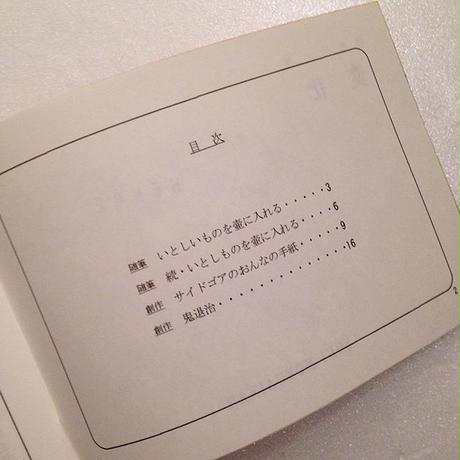 目 次
随筆 いとしいものを壷に入れる・・・・・3
随筆 続・いとしものを壷に入れる・・・・6
創作 サイドゴアのおんなの手紙・・・・・9
創作 鬼退治・・・・・・・・・・・・・・・16
2